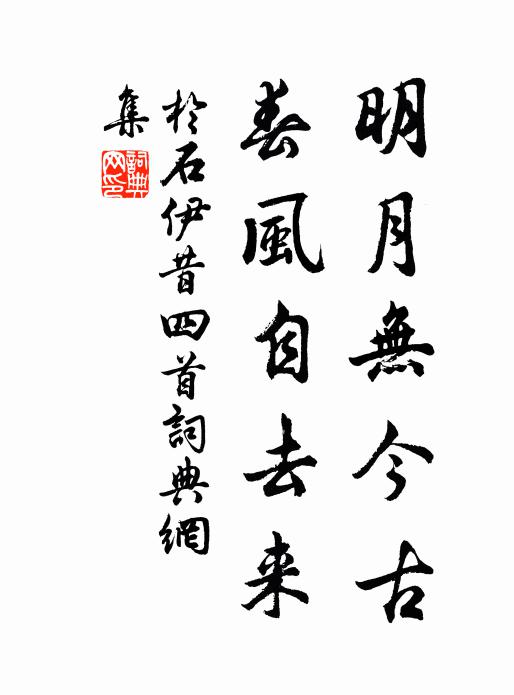 明月無今古
春風自去来
於石伊昔四首詞典網
集
詞典
网印